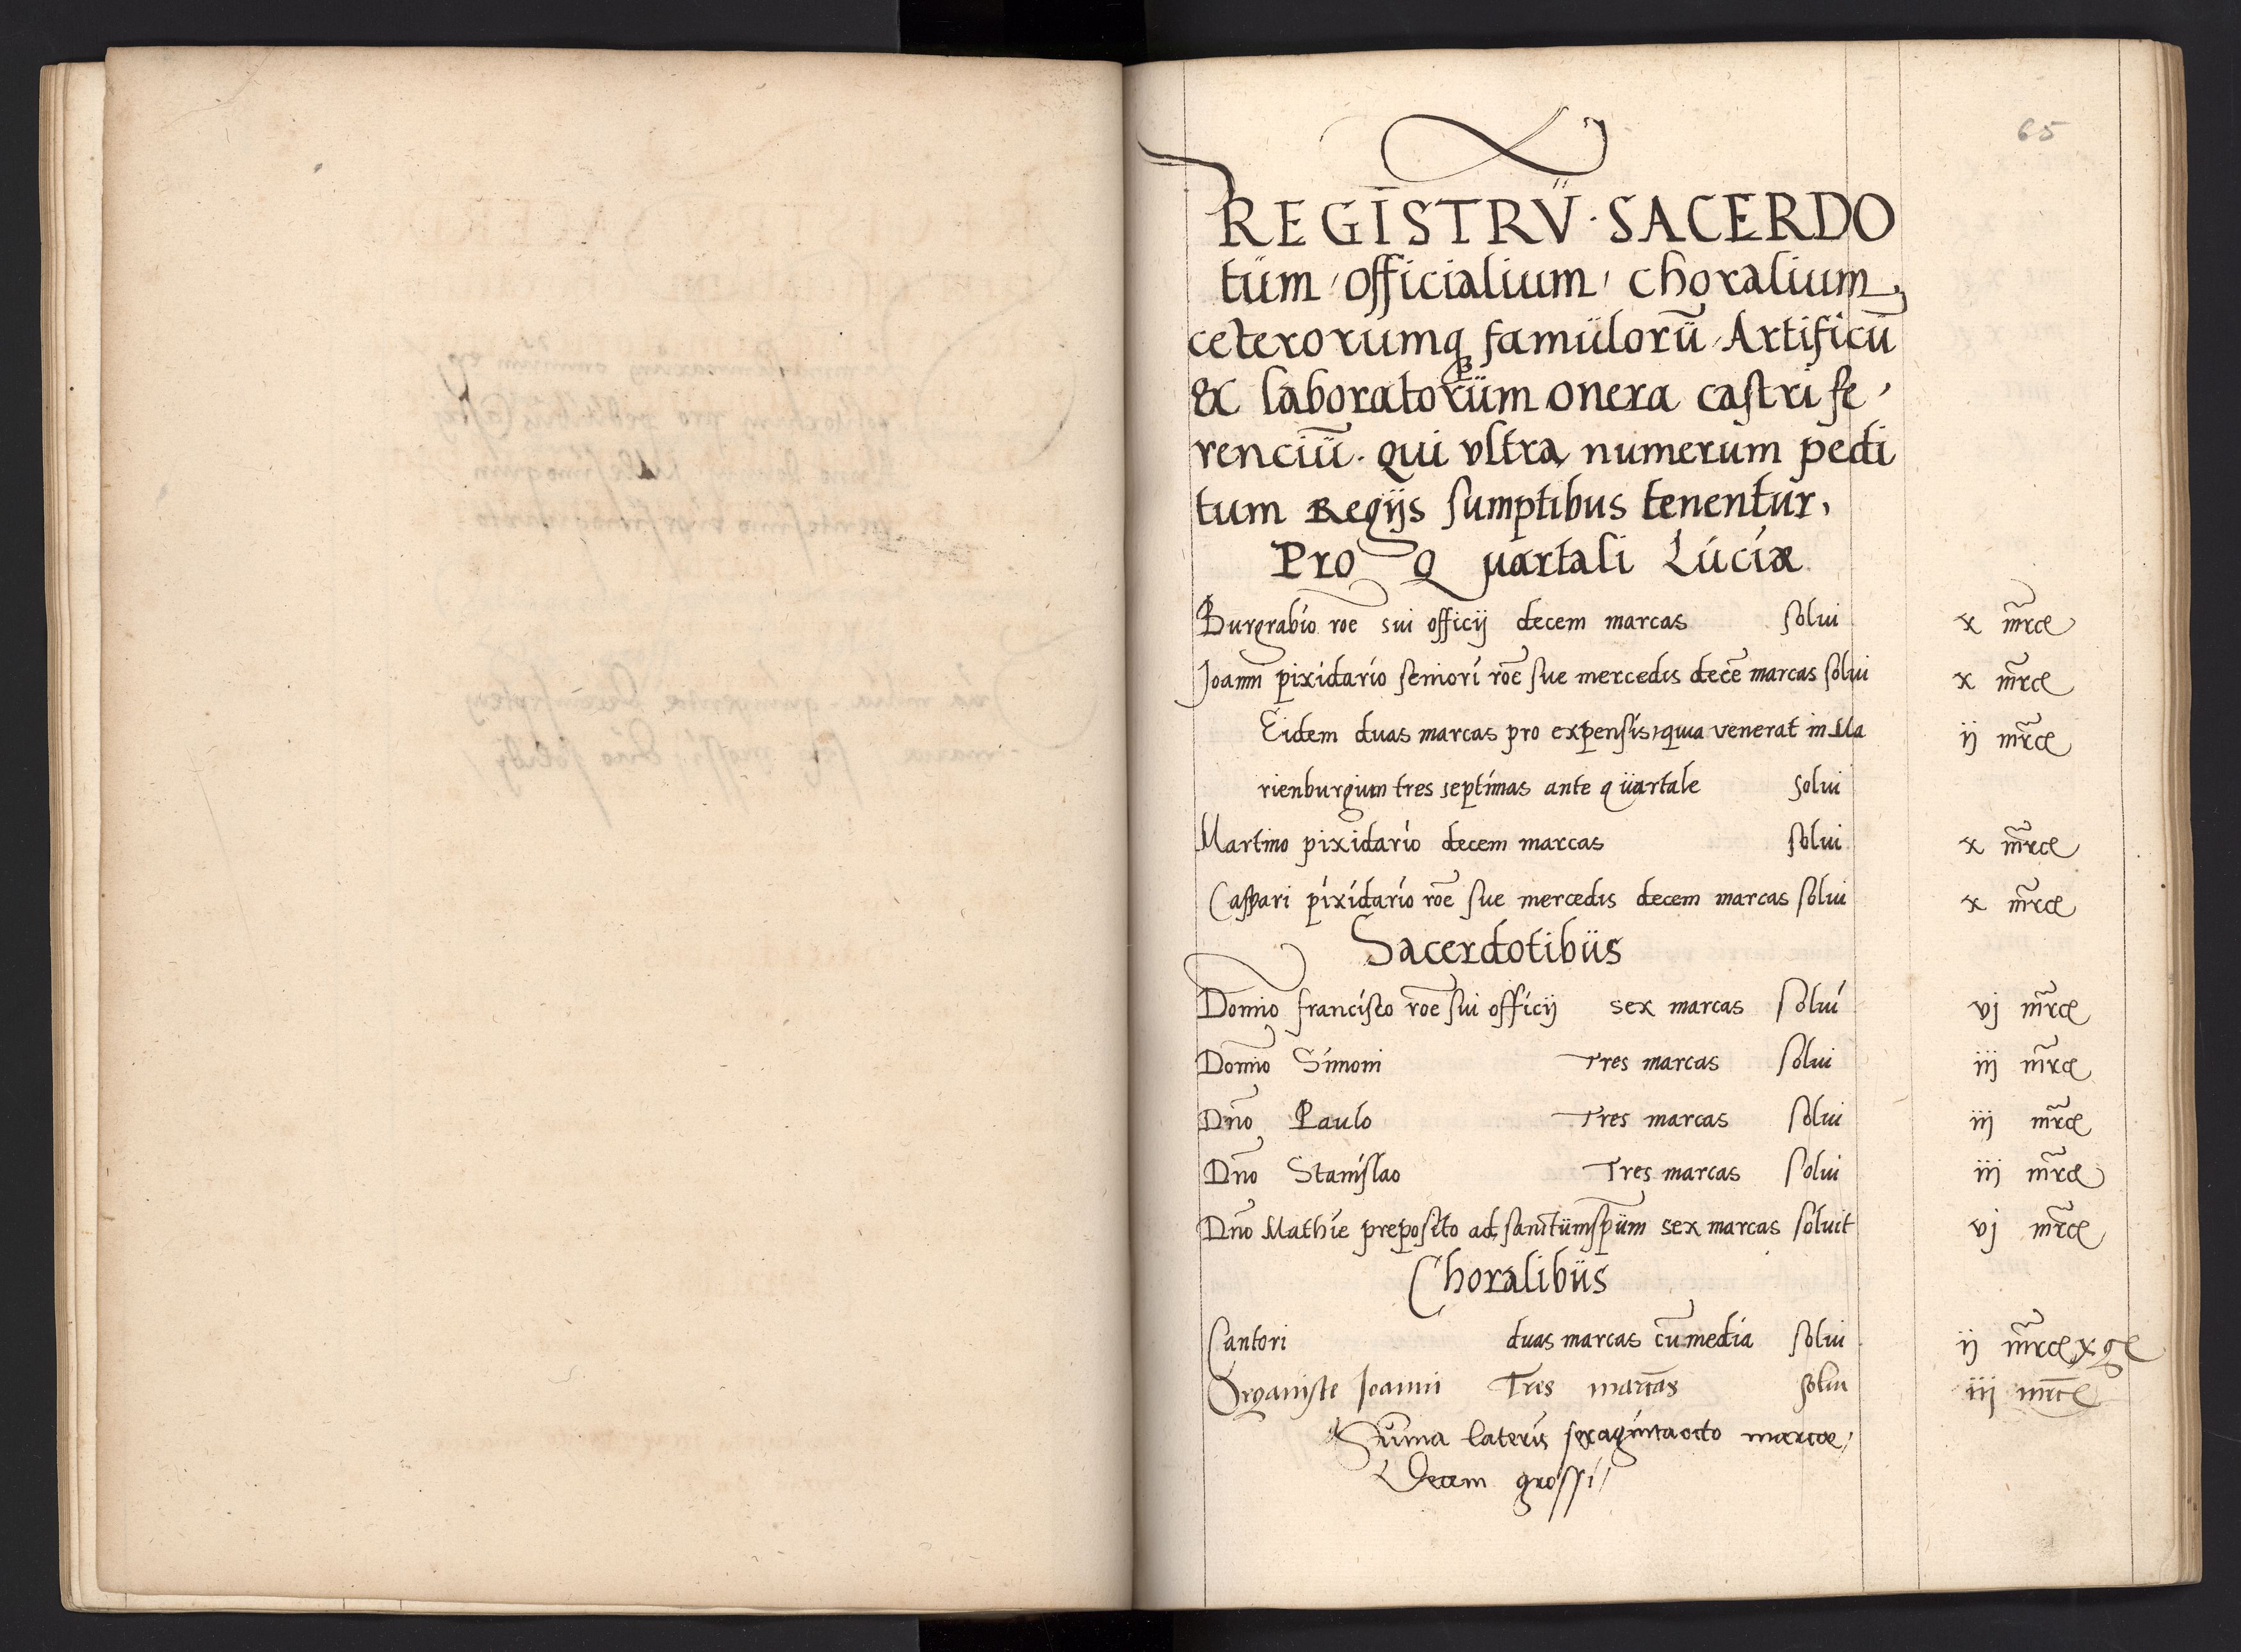 65
REGISTRV̄ · SACERDO
tum officialium choralium
ceterorumq famulorū Artificū
Et laboratorum onera castri fe
renciū. qui vltra numerum pedi
tum Regijs sumptibus tenentur.
Pro Quartali Luciæ
Burgrabio roē sui officij decem marcas solui x mrcę
Joanni pixidario seniori roē sue mercedis decē marcas solui x mrcę
Eidem duas marcas pro expensis, quia venerat in Ma ij mrcę
rienburgium tres septimas ante quartale solui
Martino pixidario decem marcas solui x mrcę
Caspari pixidario roē sue mercedis decem marcas solui x mrcę
Sacerdotibus
Domīo francisco roē sui officij sex marcas solui vj mrcę
Domīo Simoni Tres marcas solui iij mrcę
Dno Paulo Tres marcas solui iij mrcę
Dno Stanislao Tres marcas solui iij mrcę
Dno Mathie preposito ad sanctum spūm sex marcas soluit vj mrcę
Choralibus
Cantori duas marcas cū media solui ij mrcę x gę
Organiste Joanni Tres marcas solui iij mrcę
Sūma lateris sexagintaocto marcæ
Decem grossi